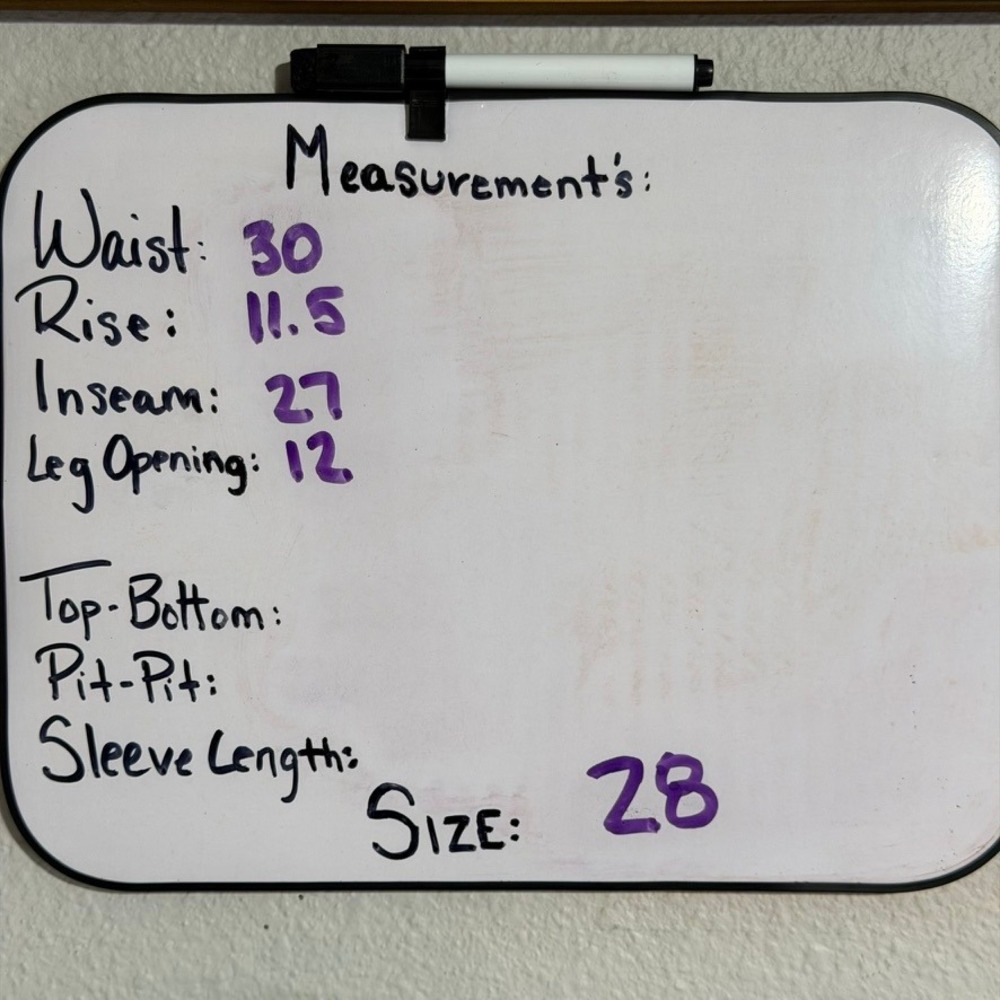 Measurement's:
Waist: 30
Rise: 11.5
Inseam: 27
Leg Opening: 12
Top-Bottom:
Pit-Pit:
Sleeve Length:
SIZE: 28